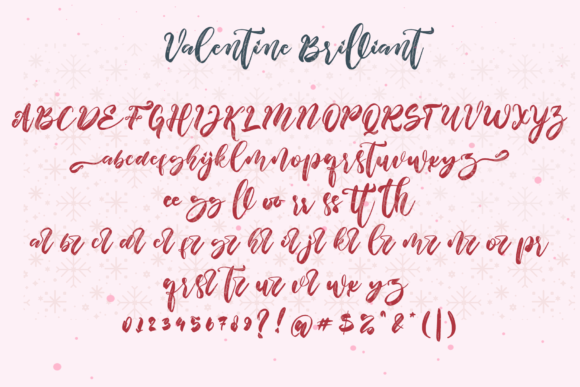 Valentine Brilliant
ABCDEFGHIJKLMNOPQRSTUVWXYZ
abcdefghijklmnopqrstuvwxyz
ee gg ll oo rr ss tt th
ar br cr dr er fr gr hr ir jr kr lr mr nr or pr
qr sr tr ur vr wr xr yr zr
0123456789?!@#$%^&*(|)